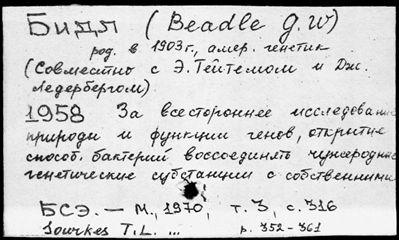 Бидл (Beadle G.W)
род. в 1903г., амер. генетик
(Совместно с Э. Тейтемом и Дж.
Ледербергом)
1958 За всестороннее исследование
природы и функции генов, открытие
способ. бактерий воссоединять чужеродные
генетические субстанции с собственными
БСЭ. — М., 1970, т. 3, с. 316
Sourkes T.L. ... p. 352-361